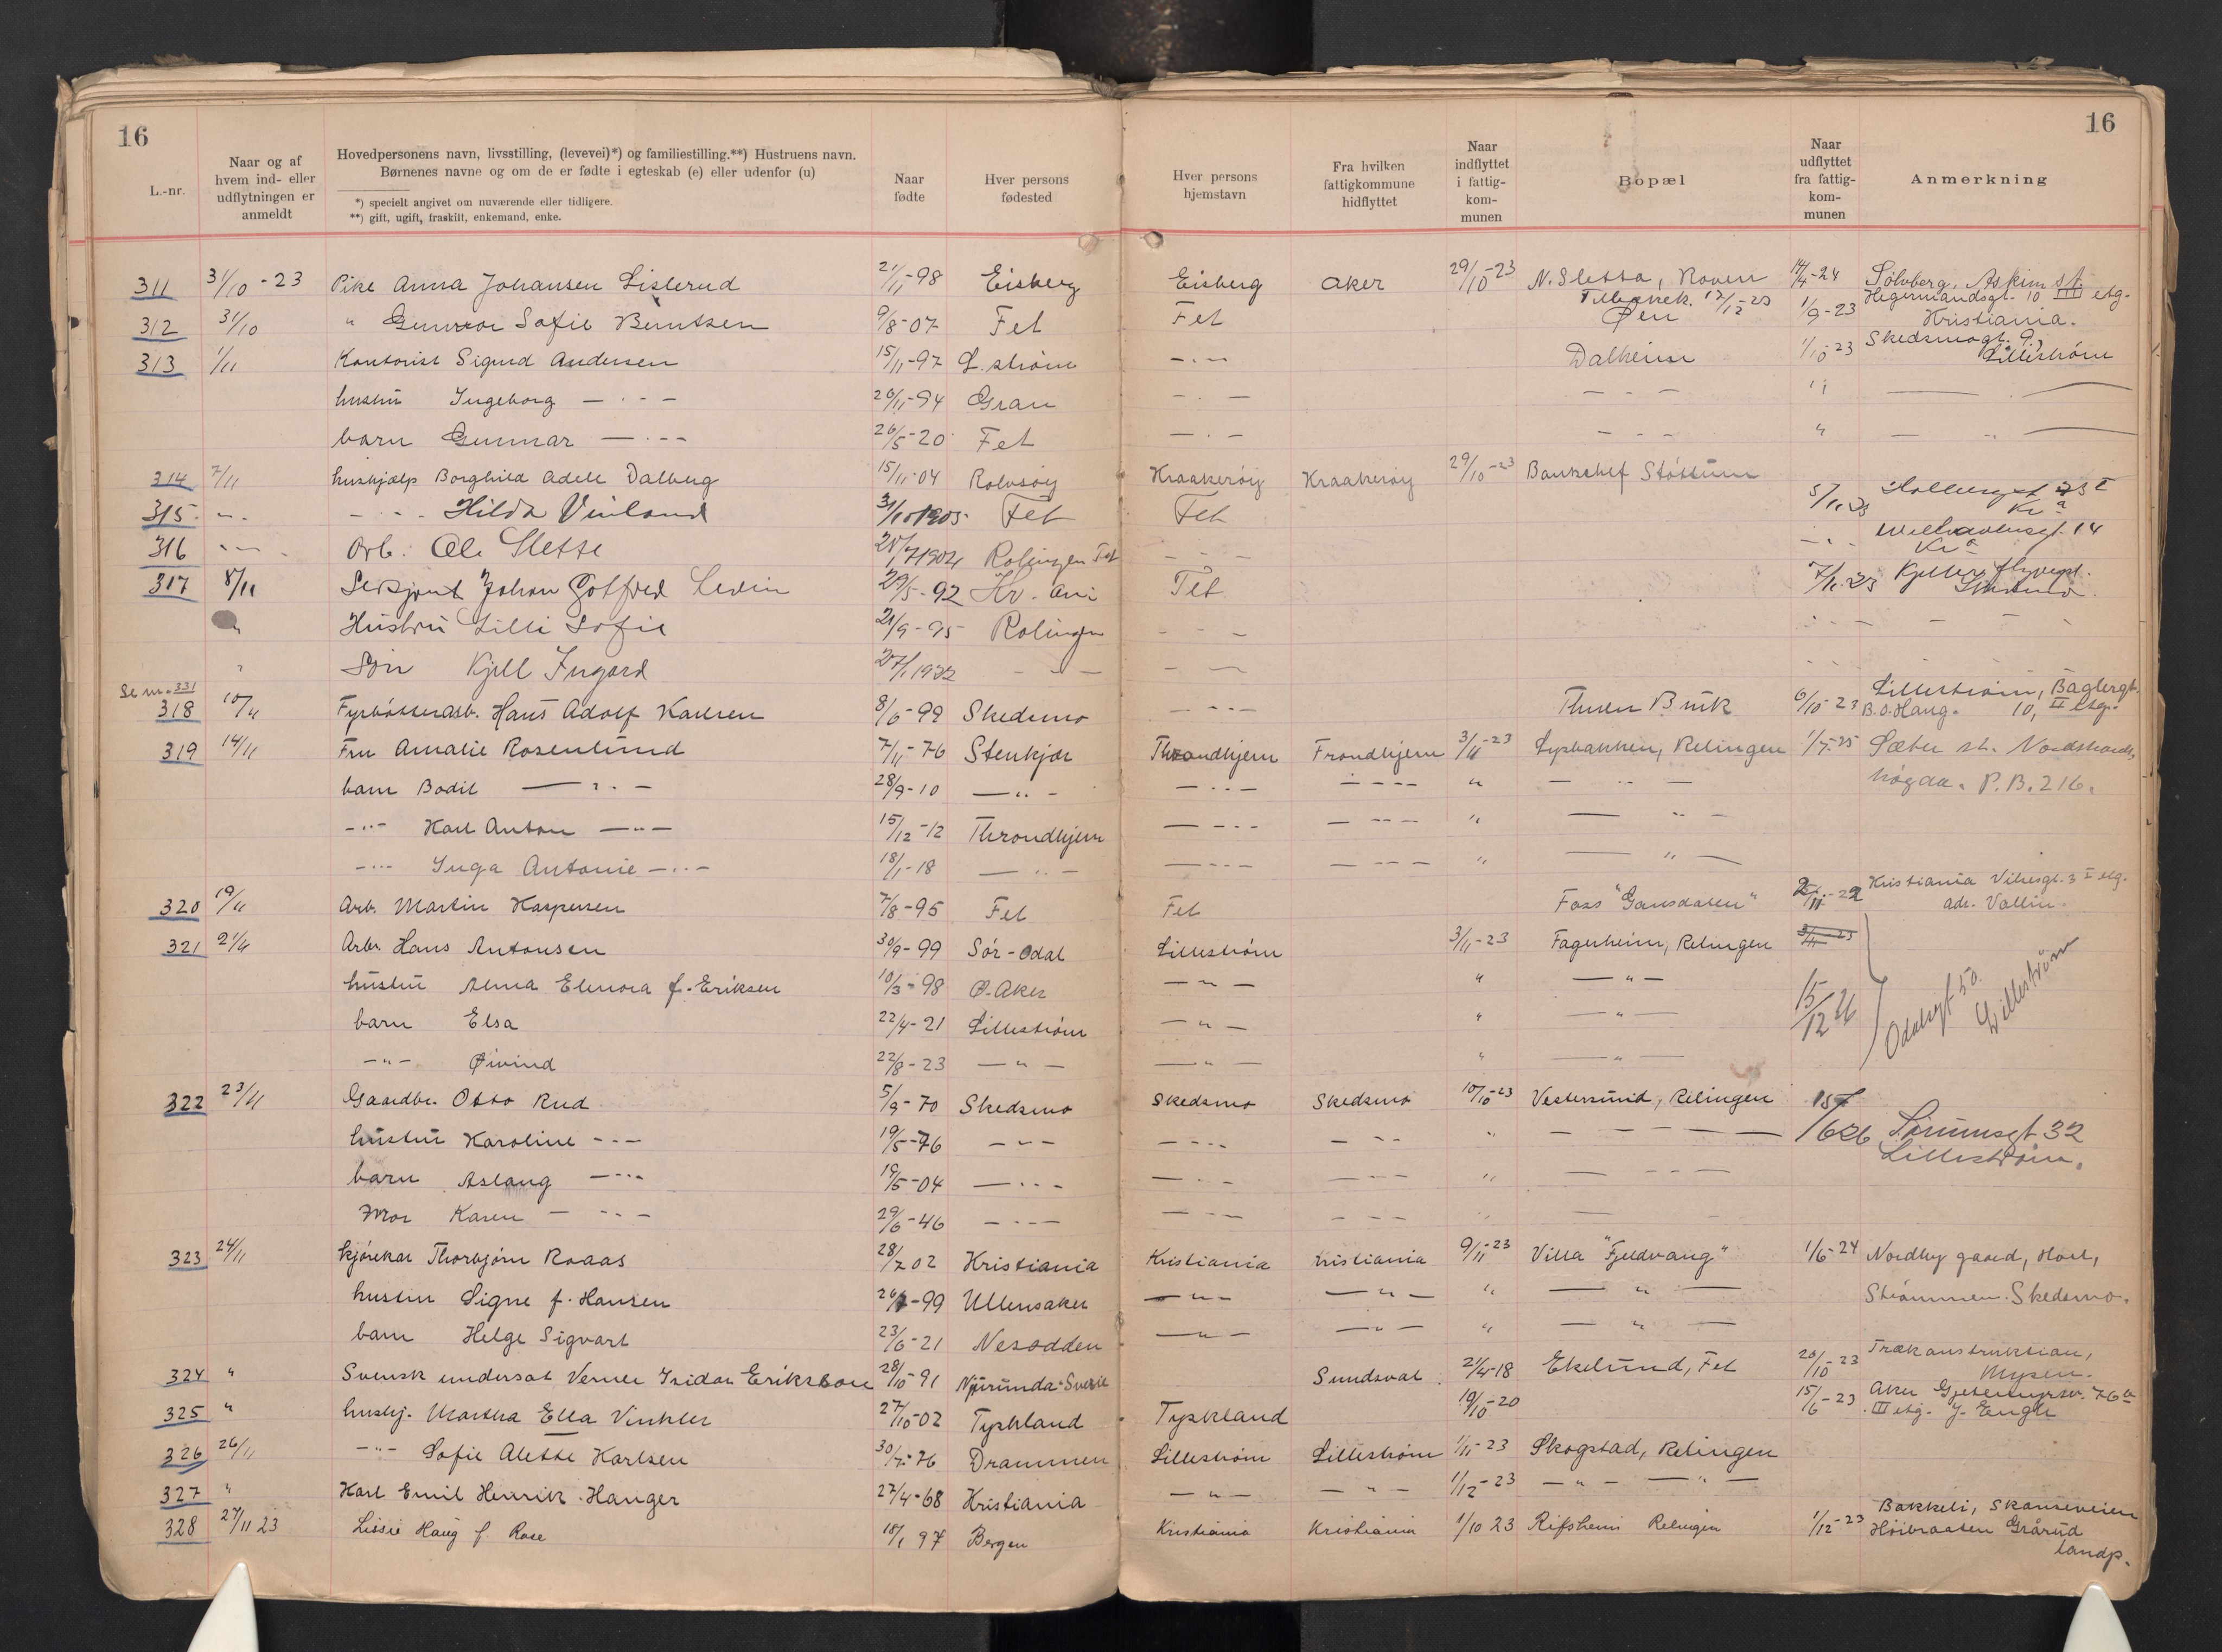 16
16
L.-nr.
Naar og af hvem ind- eller udflytningen er anmeldt
Hovedpersonens navn, livsstilling, (levevei)*) og familiestilling.**) Hustruens navn.
Børnenes navne og om de er fødte i egteskab (e) eller udenfor (u)
*) specielt angivet om nuværende eller tidligere.
**) gift, ugift, fraskilt, enkemand, enke.
Naar fødte
Hver persons fødested
Hver persons hjemstavn
Fra hvilken fattigkommune hidflyttet
Naar indflyttet i fattig-kom-munen
Bopæl
Naar udflyttet fra fattig-kom-munen
Anmerkning
311 31/10-23 Pike Anna Johansen Lislerud 21/11-98 Eisberg Eisberg Aker 29/10-23 N. Sletta, Roven 14/4-24 Sølvberg, Askim st.
Tilbakek. 12/12-23
312 31/10 " Gunvor Sofie Berntsen 9/8-07 Fet Fet Øen 1/9-23 Hegermandsgt. 10 III etg. Kristiania.
313 1/11 Kontorist Sigurd Andersen 15/11-97 L.strøm -"- Dalheim 1/10-23 Skedsmogt. 9, Lillestrøm
hustru Ingeborg -"- 26/11-94 Gran -"- -"- "
barn Gunnar -"- 26/5-20 Fet -"- -"- " - " -
314 7/11 hushjælp Borghild Adele Dalberg 15/11-04 Rolvsøy Kraakerøy Kraakerøy 29/10-23 Bankchef Støttum
315 -"- -"- Hilda Vinland 31/10 1905 Fet Fet 5/11.23 Holbergsgt 23 I Kr.a
316 -"- Arb. Ole Slette 28/7 1904 Rolingen Fet -"- -"- gt. 14 Kr.a
317 8/11 Sersjant Johan Gotfred Levin 29/5-92 Kr. ani Fet 7/11.23 Kjeller flyvepl.
" Hustru Lilli Sofie 21/9-95 Rolingen -"-
" Søn Kjell Ingard 27/1 1922 -"- -"-
Se nr. 331
318 10/11 Fyrbøtterarb. Hans Adolf Karlsen 8/6-99 Skedsmo -"- Thuen Bruk 6/10-23 Lillestrøm, Bagergt. 10, II etg.
B.O. Haug.
319 14/11 Fru Amalie Rosenlund 7/11-76 Stenkjær Throndhjem Trondhjem 3/11-23 Lysbakken, Relingen 1/5-25 Sæter st. Nordstrands-
høgda. P.B. 216.
barn Bodil -"- 28/9-10 -"- -"- -"- " -"-
-"- Karl Anton -"- 15/12-12 Throndhjem -"- -"- " -"-
-"- Inga Antonie -"- 18/1-18 -"- -"- -"- " -"-
320 19/11 Arb. Martin Kaspersen 7/8-95 Fet Fet Foss "Gansdalen" Kristiania Vibesgt. 3 I etg.
adr. Vallin.
321 21/11 Arb. Hans Antonsen 30/9-99 Sør-Odal Lillestrøm 3/11-23 Fagerheim, Relingen 3/11-23
hustru Anna Elenora f. Eriksen 10/3-98 Ø. Aker -"- " -"- 15/12 26
barn Elsa 22/4-21 Lillestrøm -"- " -"- Odalsgt 50. Lillestrøm
-"- Øivind 22/8-23 -"- -"- " -"-
322 23/11 Gaardbr. Otto Rud 5/9-70 Skedsmo Skedsmo Skedsmo 10/10-23 Vestersund, Relingen 15/6 26 Sørumsgt 32
Lillestrøm.
hustru Karoline -"- 19/5-76 -"- -"- -"- " -"-
barn Aslaug -"- 19/5-04 -"- -"- -"- " -"-
Mor Karen -"- 29/6-46 -"- -"- -"- " -"-
323 24/11 kjørekar Thorbjørn Raaas 28/7 02 Kristiania Kristiania Kristiania 9/11-23 Villa "Fjeldvang" 1/6-24 Nordby gaard, Hovl,
Strømmen. Skedsmo.
hustru Signe f. Hansen 26/1-99 Ullensaker -"- -"- " -"-
barn Helge Sigvart 23/6-21 Nesodden -"- -"- " -"-
324 " Svensk undersåt Verner Isidor Eriksson 28/10-91 Njurunda-Sverie Sundsval 21/4-18 Ekelund, Fet 20/10-23 Trækonstruktion,
Mysen.
325 " hushj. Martha Ella Vinkler 27/10-02 Tyskland Tyskland 19/10-20 15/6-23 Aker Gjetemyrsv. 76
III etg. J. Engh
326 26/11 -"- Sofie Alette Karlsen 30/7-76 Drammen Lillestrøm Lillestrøm 1/11-23 Skogstad, Relingen
327 " Karl Emil Henrik Hanger 27/4-68 Kristiania -"- -"- 1/12-23 -"- -"-
328 27/11 23 Lissie Haug f. Rose 18/1 97 Bergen Kristiania Kristiania 1/10 23 Rifsheim Relingen 1/12-23 Bakkeli, Skanseveien
Høibraaten Grårud
landp.